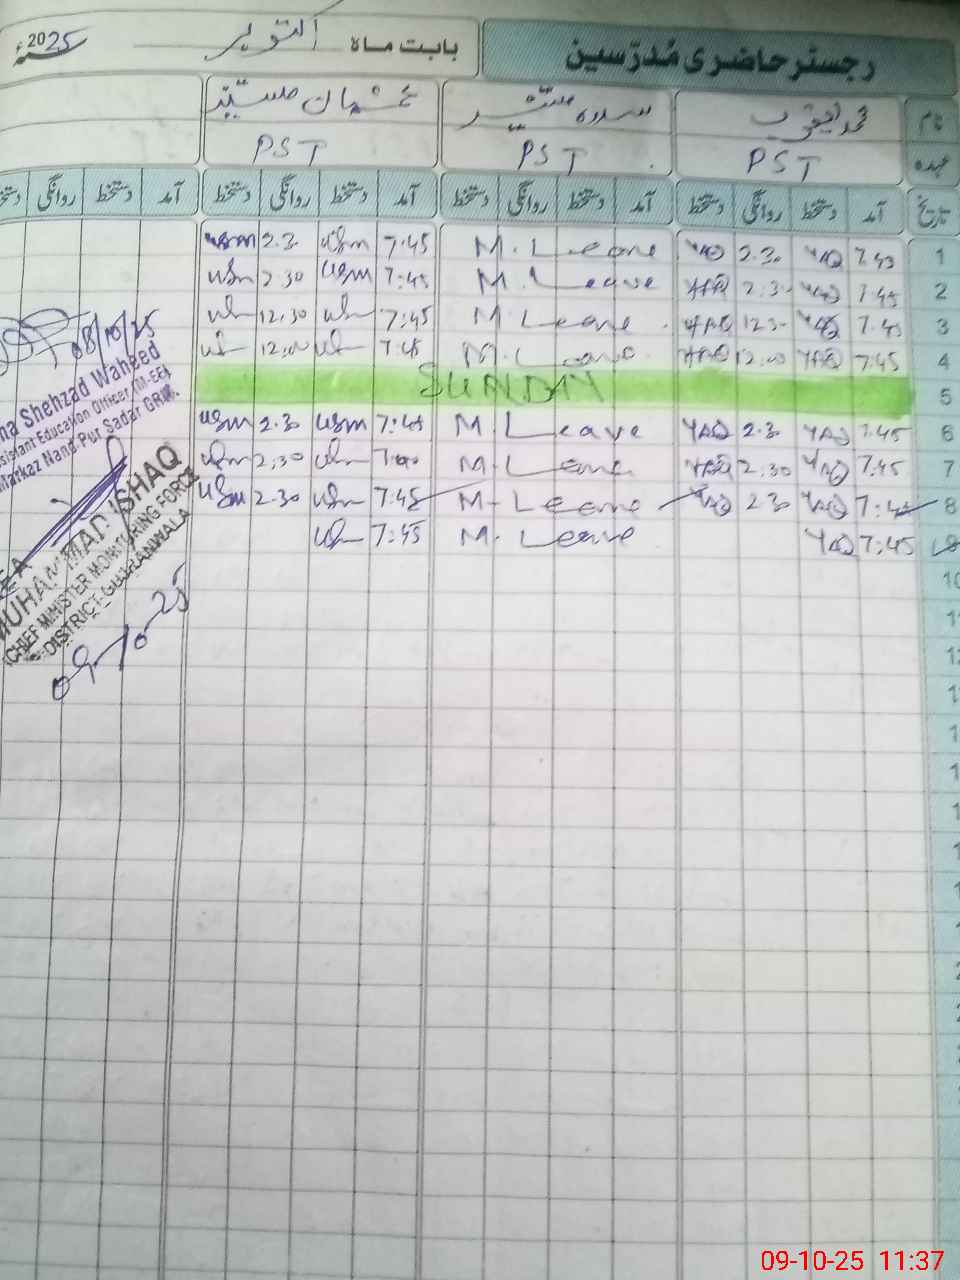 رجسٹر حاضری مُدرّسین بابت ماہ اکتوبر 2025ء
نام محمد یعقوب سدرہ عثمان
عہدہ PST PST PST
تاریخ آمد دستخط روانگی دستخط آمد دستخط روانگی دستخط آمد دستخط روانگی دستخط آمد دستخط روانگی دستخط
1 7:45 YAQ 2.30 YAQ M. Leave 7:45 usm 2.30 usm
2 7:45 YAQ 2:30 YAQ M. Leave 7:45 usm 2.30 usm
3 7:45 YAQ 12.30 YAQ M. Leave 7:45 usm 12.30 usm
4 7:45 YAQ 12.00 YAQ M. Leave 7:45 12:00
5 SUNDAY
6 7:45 YAQ 2.30 YAQ M. Leave 7:45 usm 2.30 usm
7 7:45 YAQ 2.30 YAQ M. Leave usm 2:30 usm
8 7:45 YAQ 2.30 YAQ M. Leave 7:45 usm 2.30 usm
9 7:45 YAQ M. Leave 7:45 usm
10
08/10/25
Shehzad Waheed
Assistant Education Officer (M-EE)
Markaz Nang Pur Sadar GRW.
MEA
MUHAMMAD ISHAQ
CHIEF MINISTER MONITORING FORCE
DISTRICT GUJRANWALA
09-10-25
09-10-25 11:37